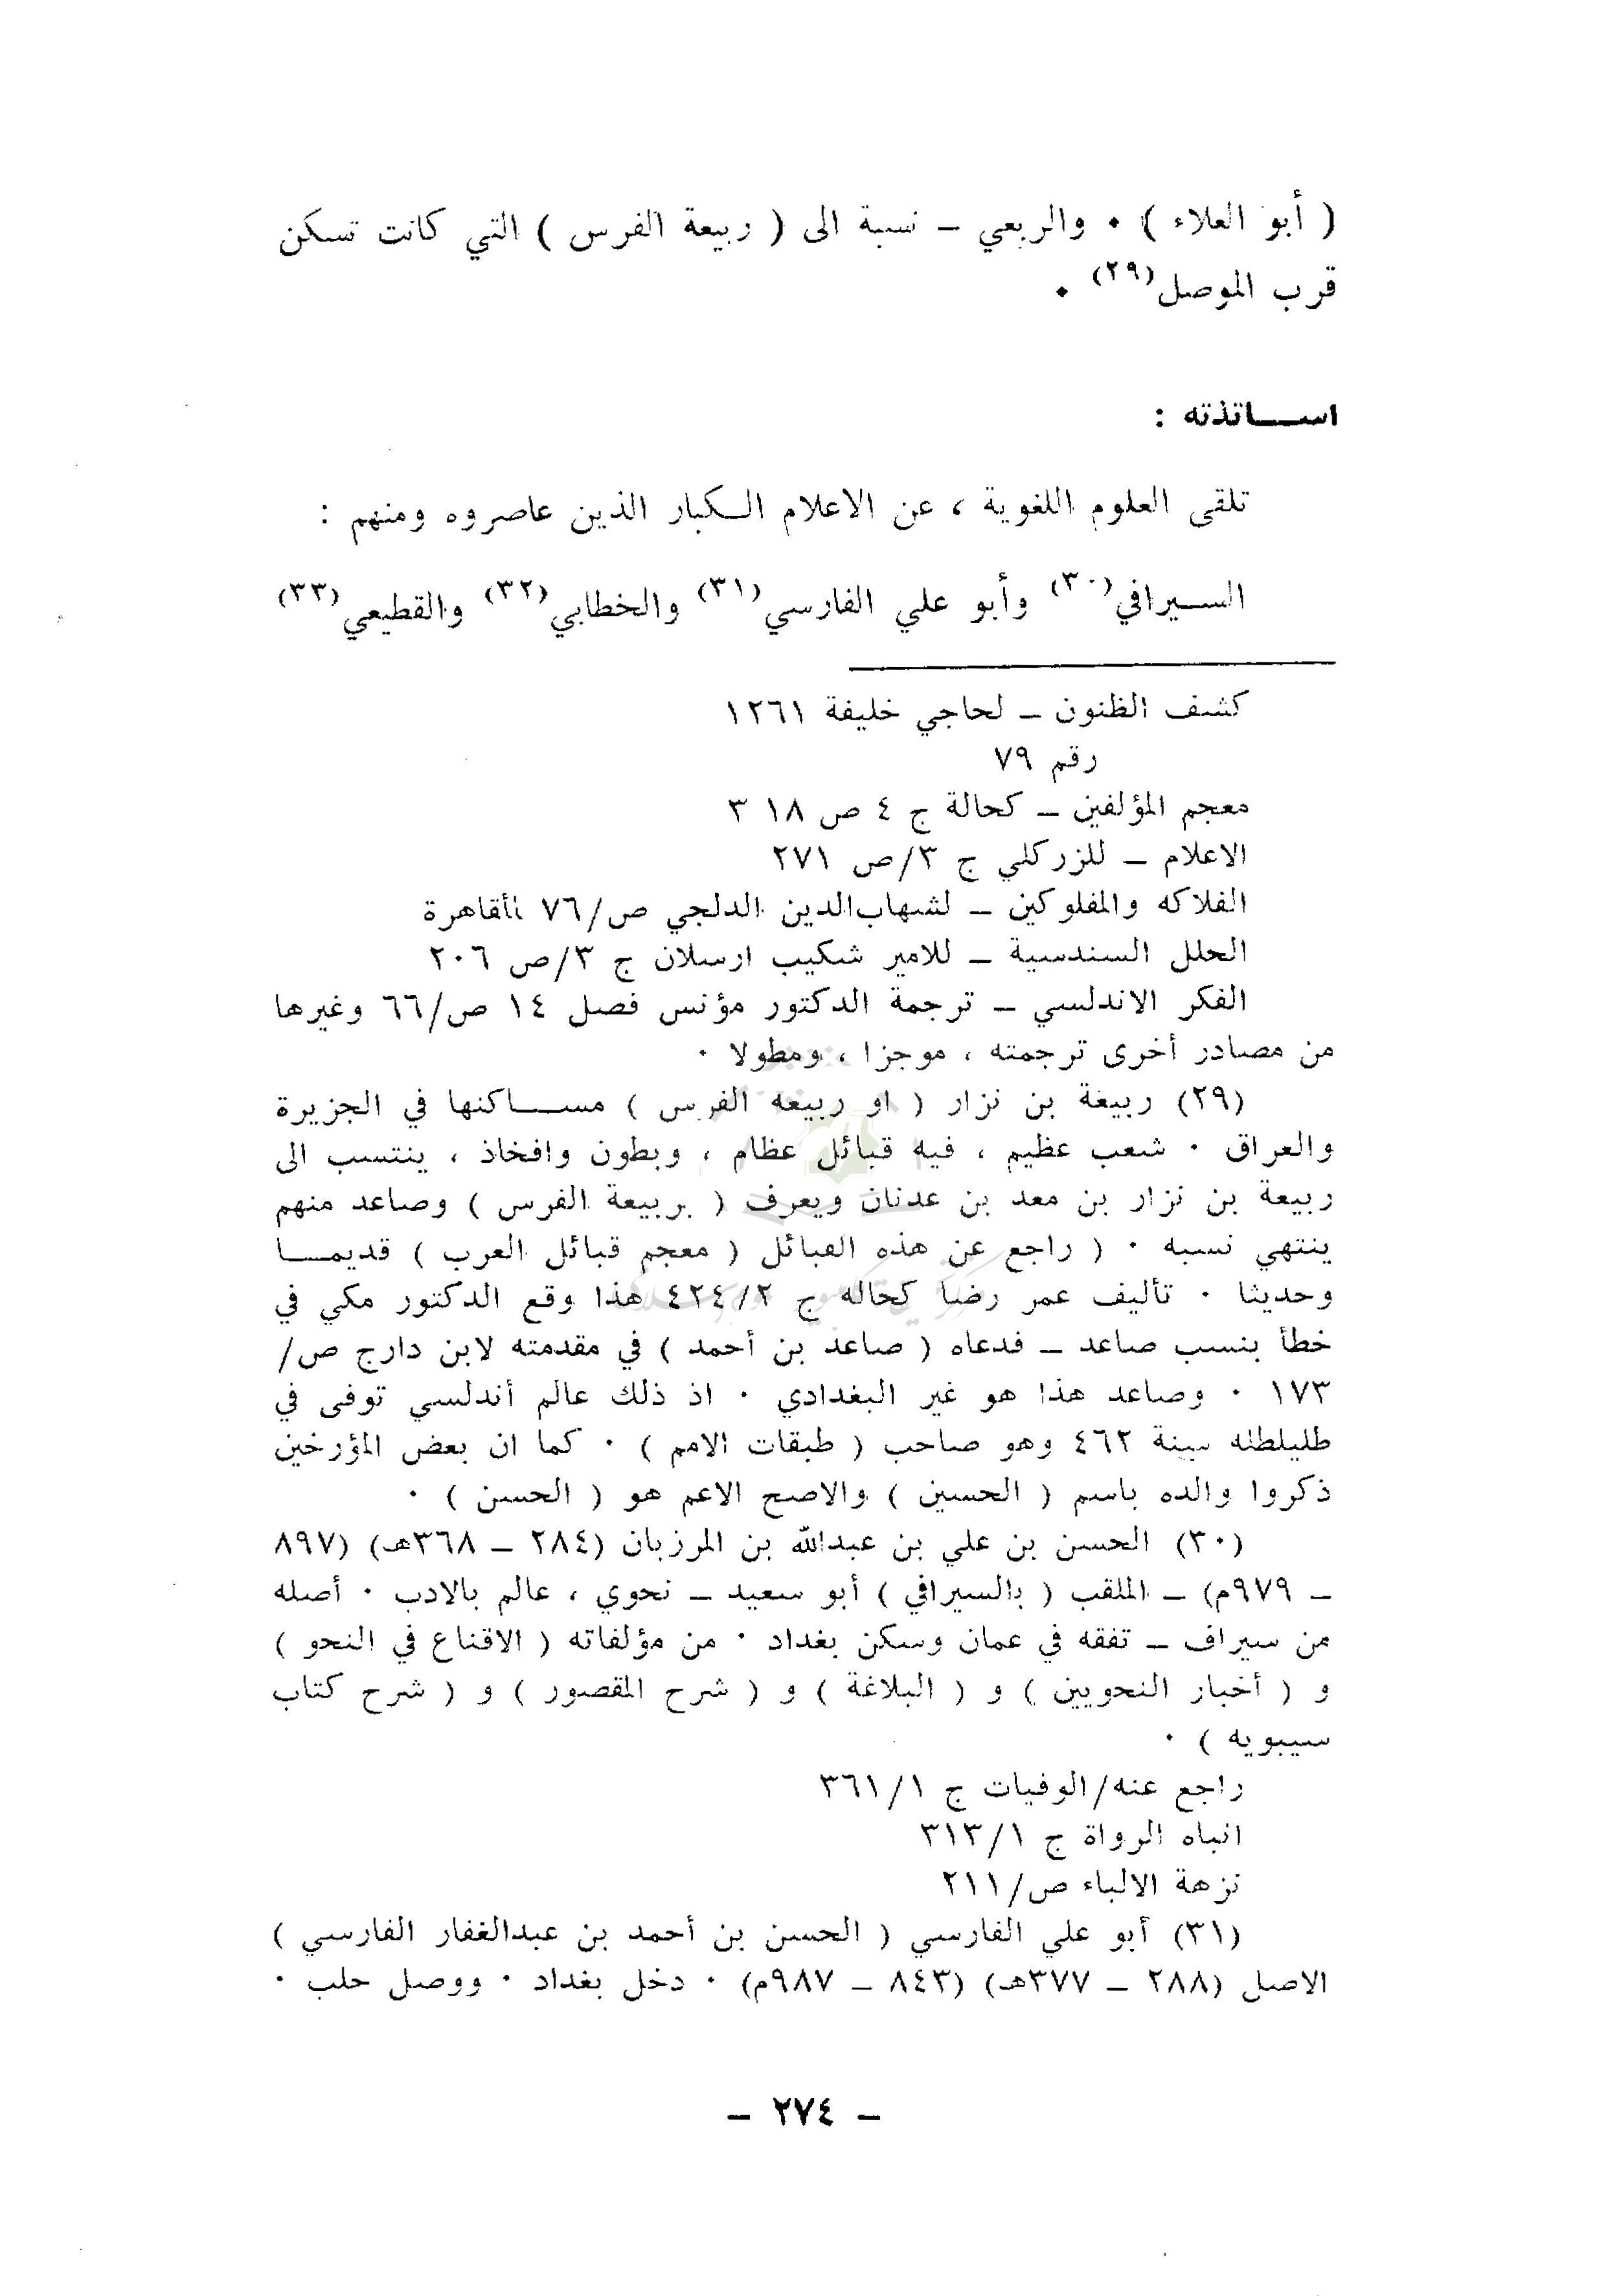 ( أبو العلاء ) ٠ والربعي – نسبة الى ( ربيعة الفرس ) التي كانت تسكن
قرب الموصل(٢٩) ٠
اســـاتذته :
تلقى العلوم اللغوية ، عن الاعلام الـكبار الذين عاصروه ومنهم :
السـيرافي(٣٠) وأبو علي الفارسي(٣١) والخطابي(٣٢) والقطيعي(٣٣)
كشف الظنون – لحاجي خليفة ١٢٦١
رقم ٧٩
معجم المؤلفين – كحالة ج ٤ ص ١٨ ٣
الاعلام – للزركلي ج ٣/ص ٢٧١
الفلاكه والمفلوكين – لشهاب‌الدين الدلجي ص/٧٦ القاهرة
الحلل السندسية – للامير شكيب ارسلان ج ٣/ص ٢٠٦
الفكر الاندلسي – ترجمة الدكتور مؤنس فصل ١٤ ص/٦٦ وغيرها
من مصادر أخرى ترجمته ، موجزا ، ومطولا ٠
(٢٩) ربيغة بن نزار ( او ربيعه الفرس ) مســاكنها في الجزيرة
والعراق ٠ شعب عظيم ، فيه قبائل عظام ، وبطون وافخاذ ، ينتسب الى
ربيعة بن نزار بن معد بن عدنان ويعرف ( بربيعة الفرس ) وصاعد منهم
ينتهي نسبه ٠ ( راجع عن هذه القبائل ( معجم قبائل العرب ) قديمــا
وحديثا ٠ تأليف عمر رضا كحاله ج ٤٢٤/٢ هذا وقع الدكتور مكي في
خطأ بنسب صاعد – فدعاه ( صاعد بن أحمد ) في مقدمته لابن دارج ص/
١٧٣ ٠ وصاعد هذا هو غير البغدادي ٠ اذ ذلك عالم أندلسي توفى في
طليلطله سنة ٤٦٢ وهو صاحب ( طبقات الامم ) ٠ كما ان بعض المؤرخين
ذكروا والده باسم ( الحسين ) والاصح الاعم هو ( الحسن ) ٠
(٣٠) الحسن بن علي بن عبدالله بن المرزبان (٢٨٤ – ٣٦٨هـ) (٨٩٧
– ٩٧٩م) – الملقب ( بالسيرافي ) أبو سعيد – نحوي ، عالم بالادب ٠ أصله
من سيراف – تفقه في عمان وسكن بغداد ٠ من مؤلفاته ( الاقناع في النحو )
و ( أخبار النحويين ) و ( البلاغة ) و ( شرح المقصور ) و ( شرح كتاب
سيبويه ) ٠
راجع عنه/الوفيات ج ٣٦١/١
انباه الرواة ج ٣١٣/١
نزهة الالباء ص/٢١١
(٣١) أبو علي الفارسي ( الحسن بن أحمد بن عبدالغفار الفارسي )
الاصل (٢٨٨ – ٣٧٧هـ) (٨٤٣ – ٩٨٧م) ٠ دخل بغداد ٠ ووصل حلب ٠
– ٢٧٤ –